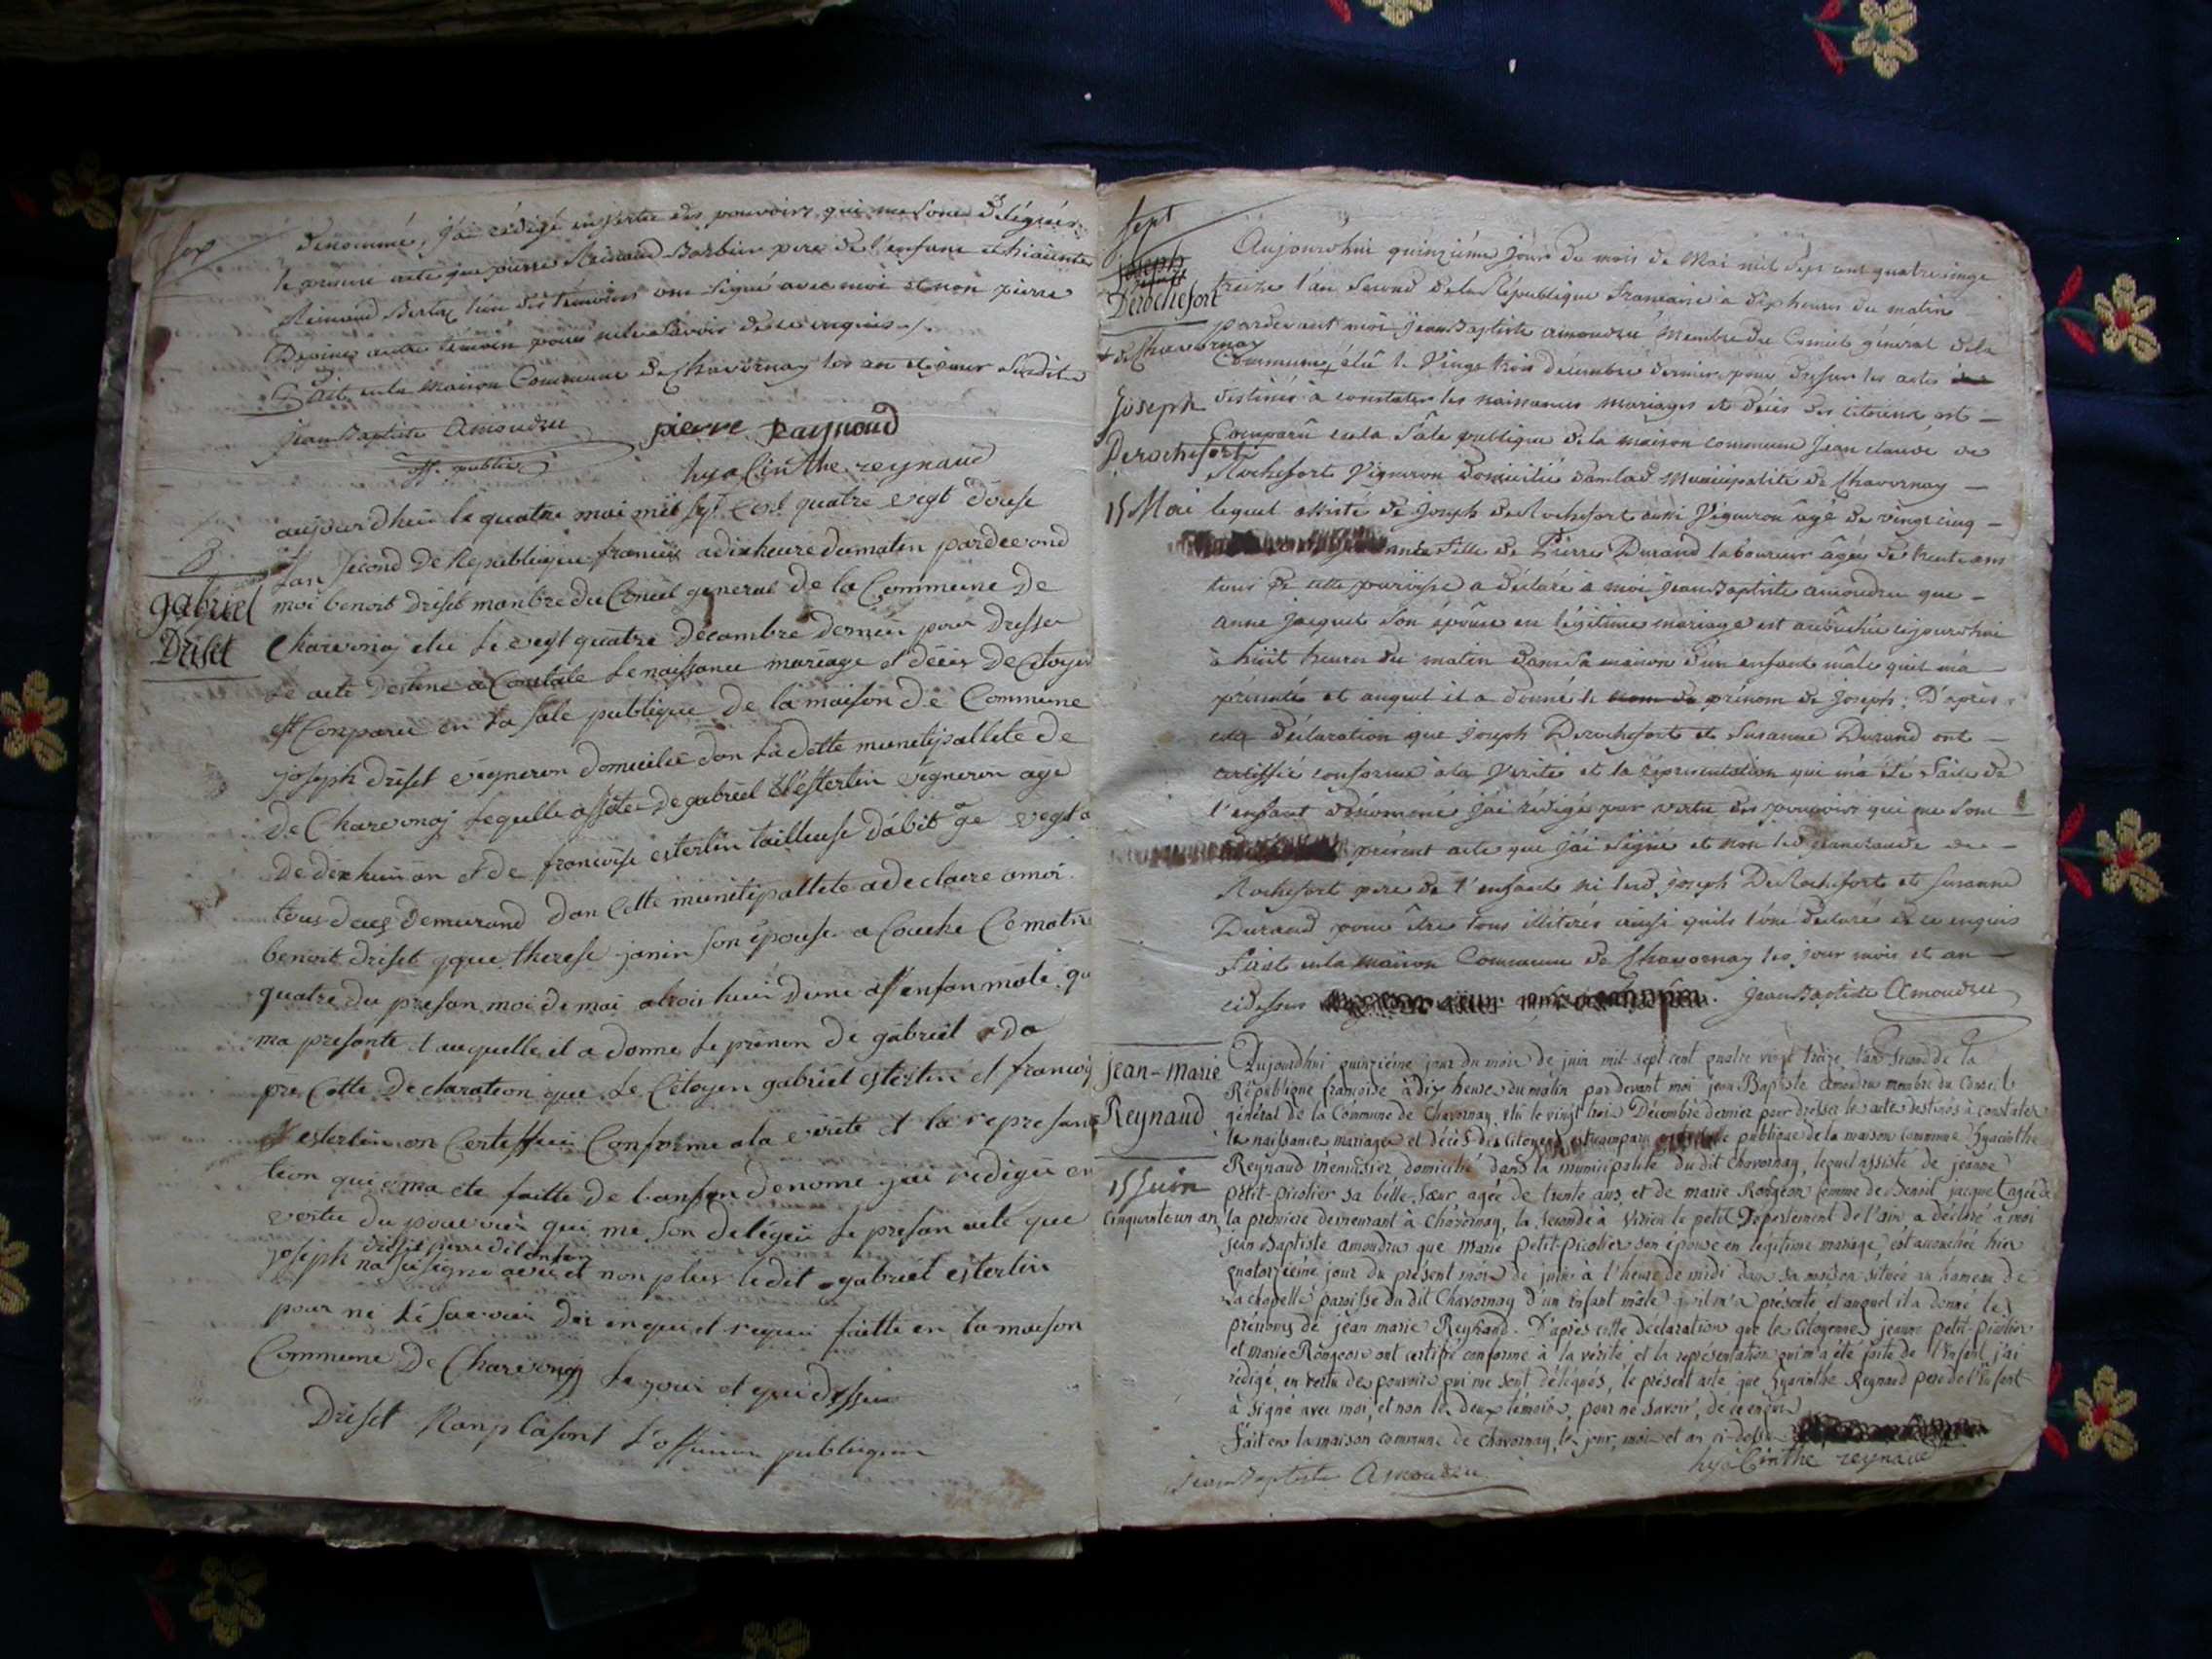 six
denommé, j'ai rédigé en vertu des pouvoirs qui me sont délégués
le présent acte que pierre Rainaud Barbier pere de l'enfant et hiacinte
Reinaud l'un des témoins ont signé avec moi et non pierre
autre témoin pour ne le savoir de ce enquis ./.
Fait en la Maison Commune de Chavornay les an et jour susdits
Jean Baptiste Amoudru pierre Raynaud
off. public
hyaCinthe reynaud
8
gabriel
Driset
aujourdhui le quatre mai mil sept Cent quatre vegt douse
Lan second de Republique francois a dix heure dumatin pardevond
moi benoit driset manbre du Conceil general de la Commune de
Charvonaj elu le vegt quatre decambre dernier pour dresser
Le acte destine a Constate Le naissance mariage et décés de Citoyen
est Conparu en la sale publique de la maison de Commune
joseph driset vigneron domicilié dan la dette munitipallete de
de Charvonaj Lequelle assiste de gabriel esterlin vigneron age
de dix huit an et de francoise esterlin tailleuse dabit ge vegt a
tous deux demurand dan Cette munitipallete a declaire a moi
benoit driset que therese janin son épouse a Couche Ce matin
quatre du presan moi de mai a trois heur dune enfan male qu
ma presante t auquelle il a donne Le prénon de gabriel a da
pre Cette declaration que Le Citoyen gabriel esterlin et francois
esterlin on Certeffiei Conforme a la virite et la represan
teon qui ma ete faitte de l'anfan denome jai rédigée en
vertu du pouvoir qui me son délégué le presan acte que
joseph driset pere dit enfan
na su signe avec et non plus ledit gabriel esterlin
pour ni Lé savoir de enquit requi faitte en la maison
Commune De Charvonaj Le jour et
Driset Ranplasant L'offisier publique
sept
Joseph
Derochefort
+ de Chavornay
Joseph
Derochefort
15 Mai
Aujourdhui quinzième jour du mois de Mai mil sept cent quatrevingt
treize l'an second de la République francaise à dix heures du matin
pardevant moi Jean Baptiste amoudru Membre du Conseil général de la
Commune + élu le Vingt trois décembre dernier pour dresser les actes
destinés à constater les naissances mariages et décès des citoiens est
Comparu en la Sale publique de la maison commune Jean claude de
Rochefort Vigneron domicilié dans lad. Municipalité de Chavornay
lequel assisté de Joseph de Rochefort aussi Vigneron âgé de vingt cinq
fille de Pierre Durand laboureur âgée de trente ans
tous de cette paroisse a déclaré à moi Jean Baptiste amoudru que
anne Jacquet son épouse en légitime mariage est accouchée cejourdhui
à huit heures du matin dans sa maison d'un enfant mâle quil m'a
présenté et auquel il a donné le nom de prénom de Joseph. D'après
cette déclaration que Joseph Derochefort et Susanne Durand ont
certiffié conforme à la vérité et la représentation qui m'a été faite de
l'enfant dénommé j'ai rédigé par vertu des pouvoirs qui me sont
présent acte que j'ai signé et non led. jeanclaude de
Rochefort pere de l'enfant ni led. joseph DeRochefort et Susanne
Durand pour être tous illitérés ainsi quils l'ont déclaré de ce enquis
Fait en la maison Commune de Chavornay les jour mois et an
cidessus Jean Baptiste Amoudru
jean-marie
Reynaud
15 juin
Aujourdhui quinzième jour du mois de juin mil sept cent quatre vingt treize, l'an second de la
République françoise à dix heures du matin par devant moi jean Baptiste Amoudru membre du Conseil
général de la Commune de Chavornay, élu le vingt trois Décembre dernier pour dresser les actes destinés à constater
les naissances mariages et décès des Citoyens est comparu en la salle publique de la maison commune hyacinthe
Reynaud menuisier domicilié dans la municipalité du dit Chavornay, lequel assisté de jeanne
petit-picolier sa belle-sœur agée de trente ans, et de marie Rongeon femme de Benoit jacquet agée de
Cinquante un an, la premiere demeurant à Chavornay, la seconde à Virieu le petit Département de l'ain a déclaré à moi
jean Baptiste Amoudru que Marie petit-picolier son épouse en légitime mariage, est accouchée hier
quatorzième jour du présent mois de juin à l'heure de midi dans sa maison située au hameau de
La chapelle paroisse du dit Chavornay d'un enfant mâle qu'il m'a présenté et auquel il a donné les
prénoms de jean marie Reynaud. D'après cette déclaration que les Citoyennes jeanne petit-picolier
et marie Rongeon ont certifié conforme à la vérité et la représentation qui m'a été faite de l'enfant j'ai
rédigé, en vertu des pouvoirs qui me sont délégués, le présent acte que hyacinthe Reynaud pere de l'enfant
à signé avec moi, et non les deux témoins, pour ne savoir, de ce enquis
Fait en la maison commune de Chavornay, les jour, mois et an ci-dessus
Jean Baptiste Amoudru hyaCinthe reynaud